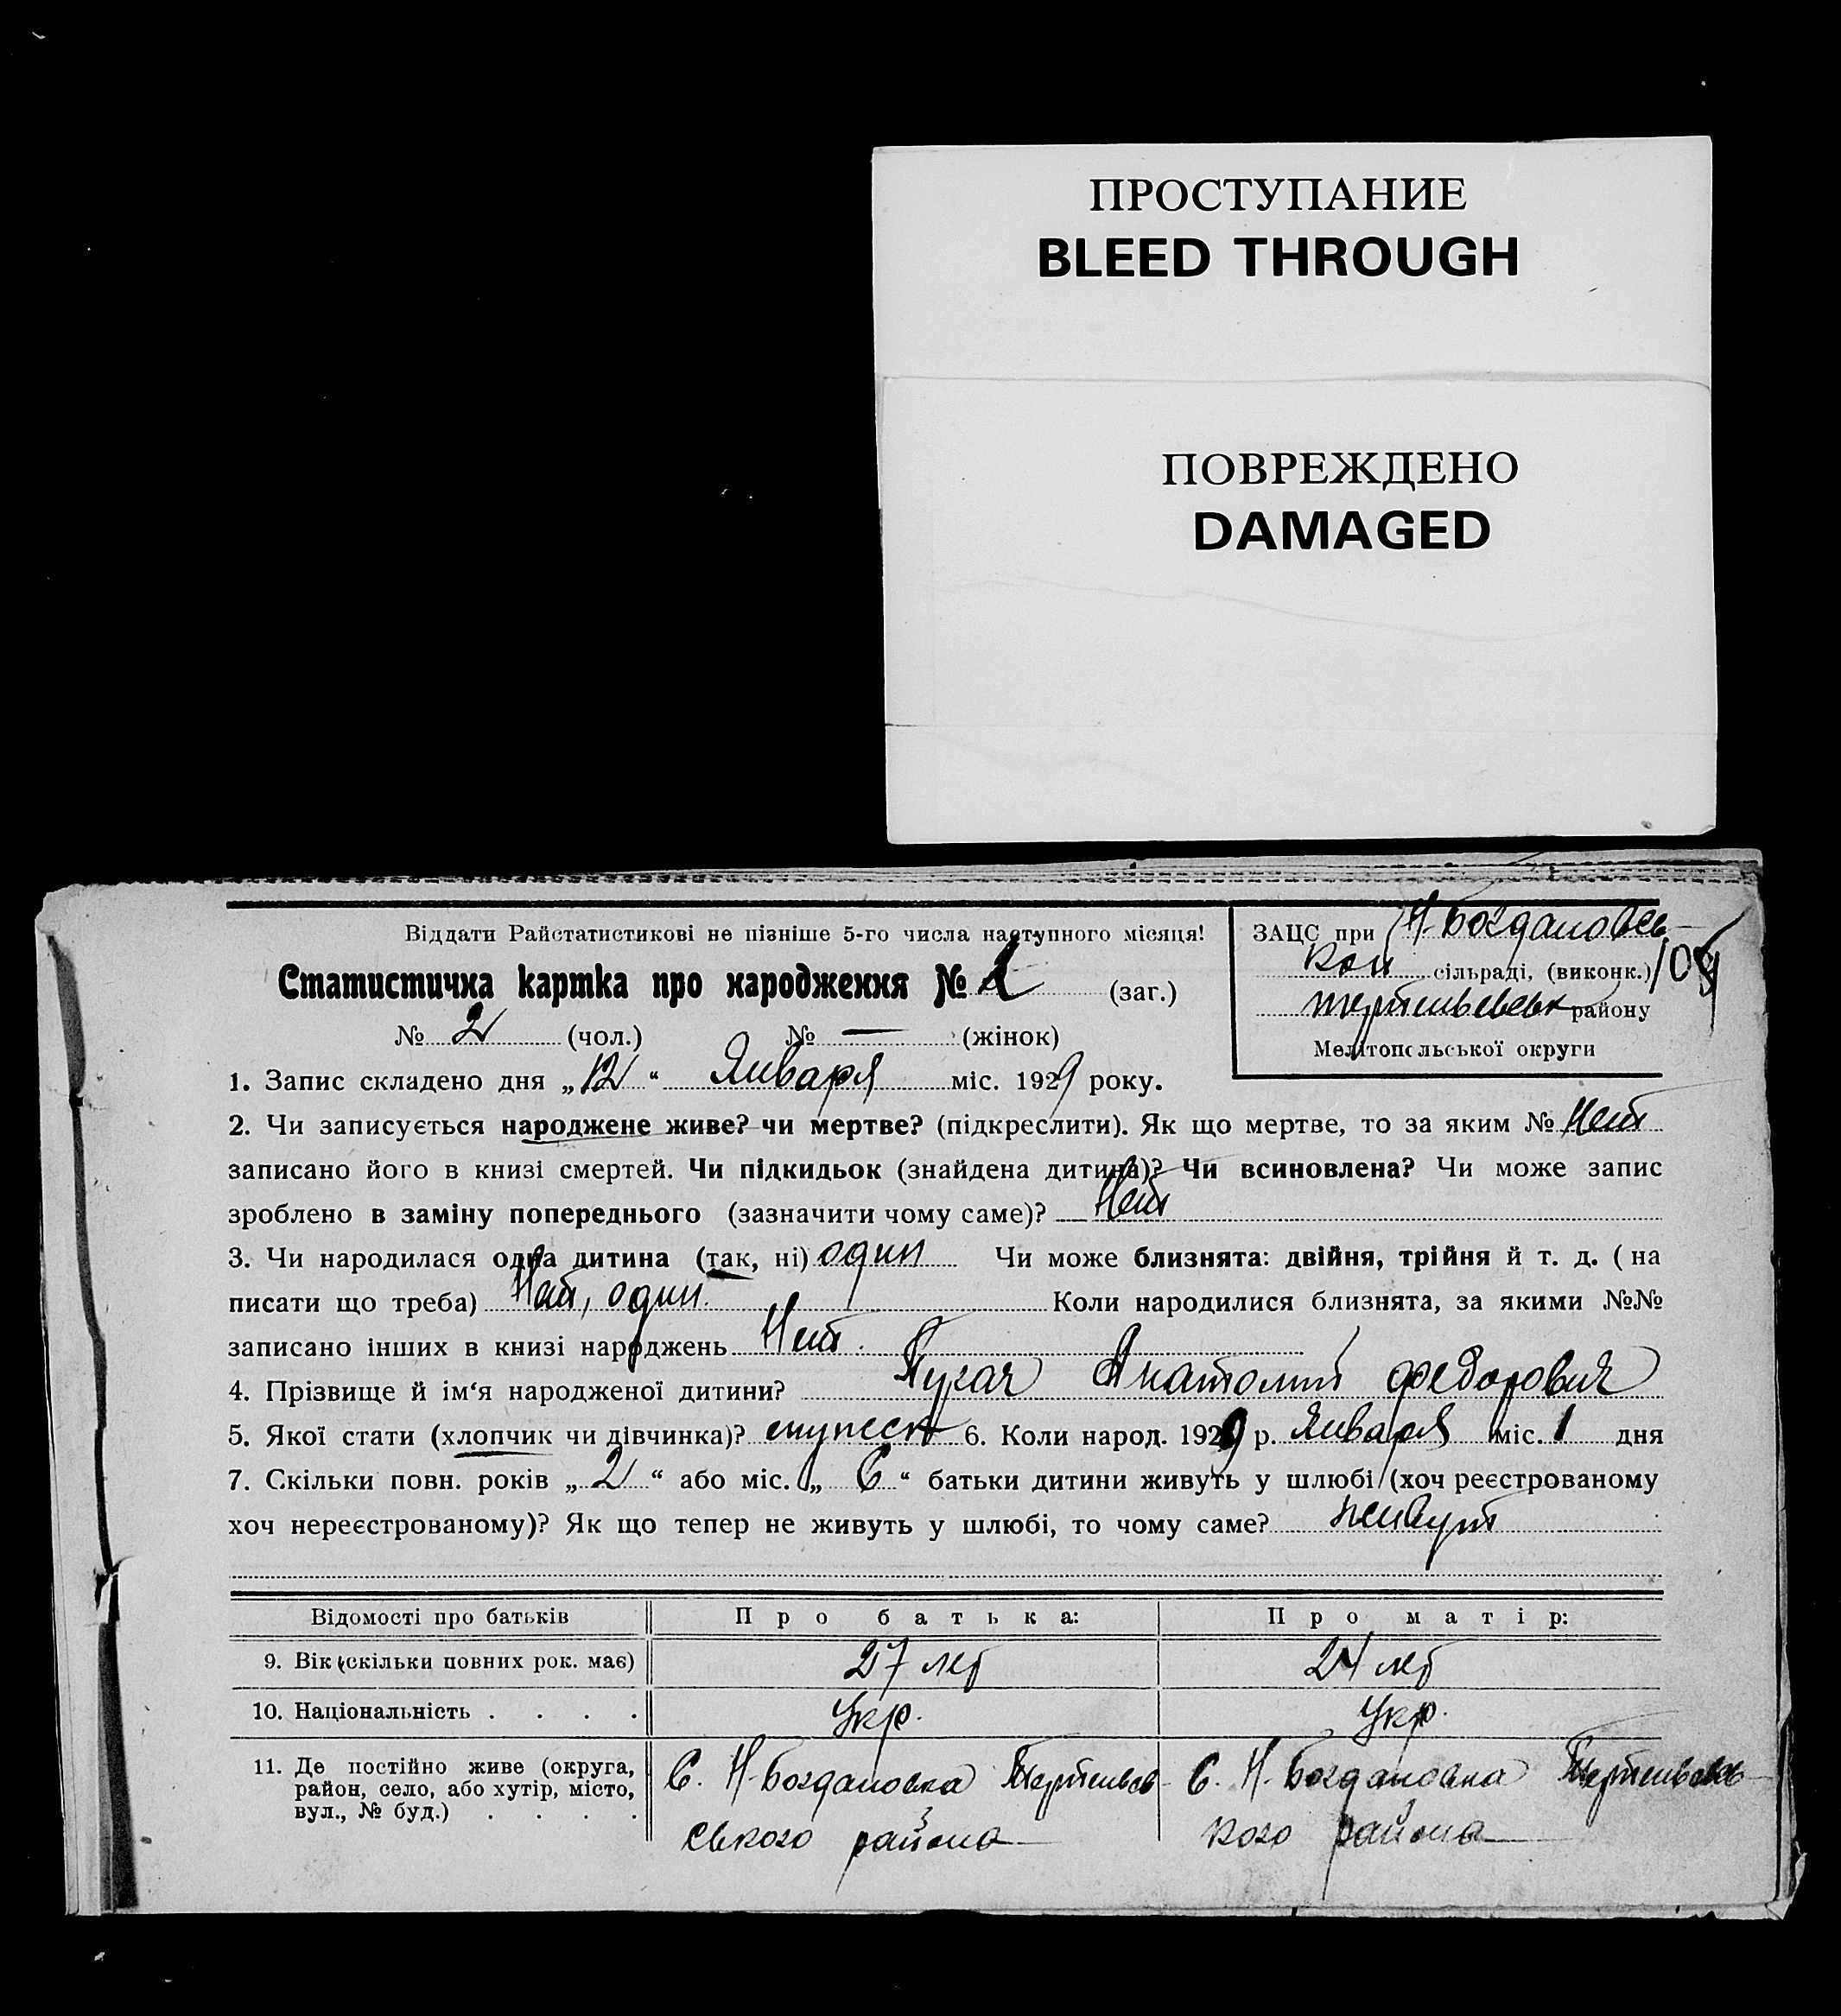 ПРОСТУПАНИЕ
BLEED THROUGH
ПОВРЕЖДЕНО
DAMAGED
Віддати Райстатистикові не пізніше 5-го числа наступного місяця!
ЗАЦС при Н-Богдановсь-
кой сільраді, (виконк.)
Статистична картка про народження № 2 (заг.)
району
№ 2 (чол.) № — (жінок)
Мелітопольської округи
1. Запис складено дня „12“ Января міс. 1929 року.
2. Чи записується народжене живе? чи мертве? (підкреслити). Як що мертве, то за яким № Нет
записано його в книзі смертей. Чи підкидьок (знайдена дитина)? Чи всиновлена? Чи може запис
зроблено в заміну попереднього (зазначити чому саме)? Нет
3. Чи народилася одна дитина (так, ні) один Чи може близнята: двійня, трійня й т. д. ( на
писати що треба) Нет, один. Коли народилися близнята, за якими №№
записано інших в книзі народжень Нет.
4. Прізвище й ім‘я народженої дитини? Пукач Анатолий Федорович
5. Якої стати (хлопчик чи дівчинка)? мужеск 6. Коли народ. 1929 р. Января міс. 1 дня
7. Скільки повн. років „2“ або міс. „6“ батьки дитини живуть у шлюбі (хоч реєстрованому
хоч нереєстрованому)? Як що тепер не живуть у шлюбі, то чому саме? живут
Відомості про батьків Про батька: Про матір:
9. Вік (скільки повних рок. має) 27 лет 24 лет
10. Національність . . . . Укр. Укр.
11. Де постійно живе (округа, С. Н-Богдановка С. Н. Богдановка
район, село, або хутір, місто,
вул., № буд.) . . . . ського района кого района